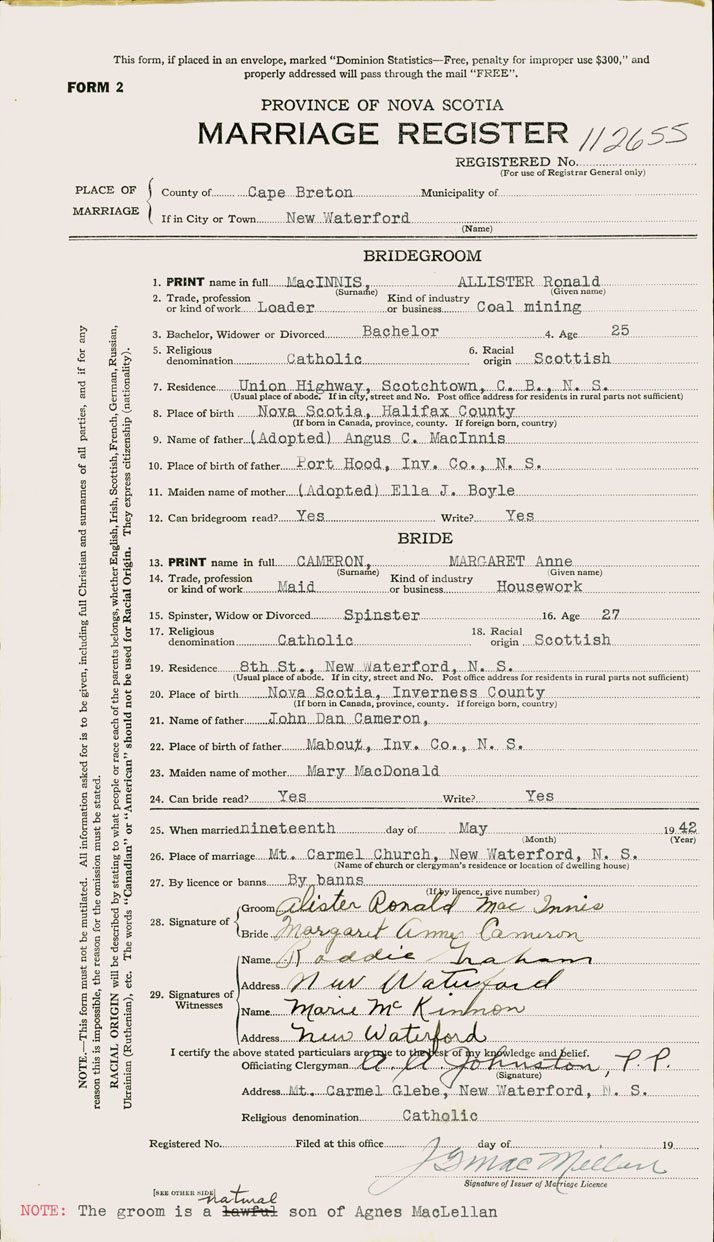 This form, if placed in an envelope, marked "Dominion Statistics—Free, penalty for improper use $300," and
properly addressed will pass through the mail "FREE".
FORM 2
PROVINCE OF NOVA SCOTIA
MARRIAGE REGISTER 112655
REGISTERED No.
(For use of Registrar General only)
PLACE OF MARRIAGE
County of Cape Breton Municipality of
If in City or Town New Waterford
(Name)
BRIDEGROOM
1. PRINT name in full MacINNIS, ALLISTER Ronald
(Surname) (Given name)
2. Trade, profession or kind of work Loader Kind of industry or business Coal mining
3. Bachelor, Widower or Divorced Bachelor 4. Age 25
5. Religious denomination Catholic 6. Racial origin Scottish
7. Residence Union Highway, Scotchtown, C. B., N. S.
(Usual place of abode. If in city, street and No. Post office address for residents in rural parts not sufficient)
8. Place of birth Nova Scotia, Halifax County
(If born in Canada, province, county. If foreign born, country)
9. Name of father (Adopted) Angus C. MacInnis
10. Place of birth of father Port Hood, Inv. Co., N. S.
11. Maiden name of mother (Adopted) Ella J. Boyle
12. Can bridegroom read? Yes Write? Yes
BRIDE
13. PRINT name in full CAMERON, MARGARET Anne
(Surname) (Given name)
14. Trade, profession or kind of work Maid Kind of industry or business Housework
15. Spinster, Widow or Divorced Spinster 16. Age 27
17. Religious denomination Catholic 18. Racial origin Scottish
19. Residence 8th St., New Waterford, N. S.
(Usual place of abode. If in city, street and No. Post office address for residents in rural parts not sufficient)
20. Place of birth Nova Scotia, Inverness County
(If born in Canada, province, county. If foreign born, country)
21. Name of father John Dan Cameron,
22. Place of birth of father Mabou, Inv. Co., N. S.
23. Maiden name of mother Mary MacDonald
24. Can bride read? Yes Write? Yes
25. When married nineteenth day of May 1942
(Month) (Year)
26. Place of marriage Mt. Carmel Church, New Waterford, N. S.
(Name of church or clergyman's residence or location of dwelling house)
27. By licence or banns By banns
(If by licence, give number)
28. Signature of
Groom Alister Ronald Mac Innis
Bride Margaret Anne Cameron
29. Signatures of Witnesses
Name Roddie Graham
Address New Waterford
Name Marie McKinnon
Address New Waterford
I certify the above stated particulars are true to the best of my knowledge and belief.
Officiating Clergyman A. A. Johnston, P. P.
(Signature)
Address Mt. Carmel Glebe, New Waterford, N. S.
Religious denomination Catholic
Registered No. Filed at this office day of 19
J G MacMillan
Signature of Issuer of Marriage Licence
[SEE OTHER SIDE]
natural
NOTE: The groom is a lawful son of Agnes MacLellan
NOTE.—This form must not be mutilated. All information asked for is to be given, including full Christian and surnames of all parties, and if for any
reason this is impossible, the reason for the omission must be stated.
RACIAL ORIGIN will be described by stating to what people or race each of the parents belongs, whether English, Irish, Scottish, French, German, Russian,
Ukrainian (Ruthenian), etc. The words "Canadian" or "American" should not be used for Racial Origin. They express citizenship (nationality).